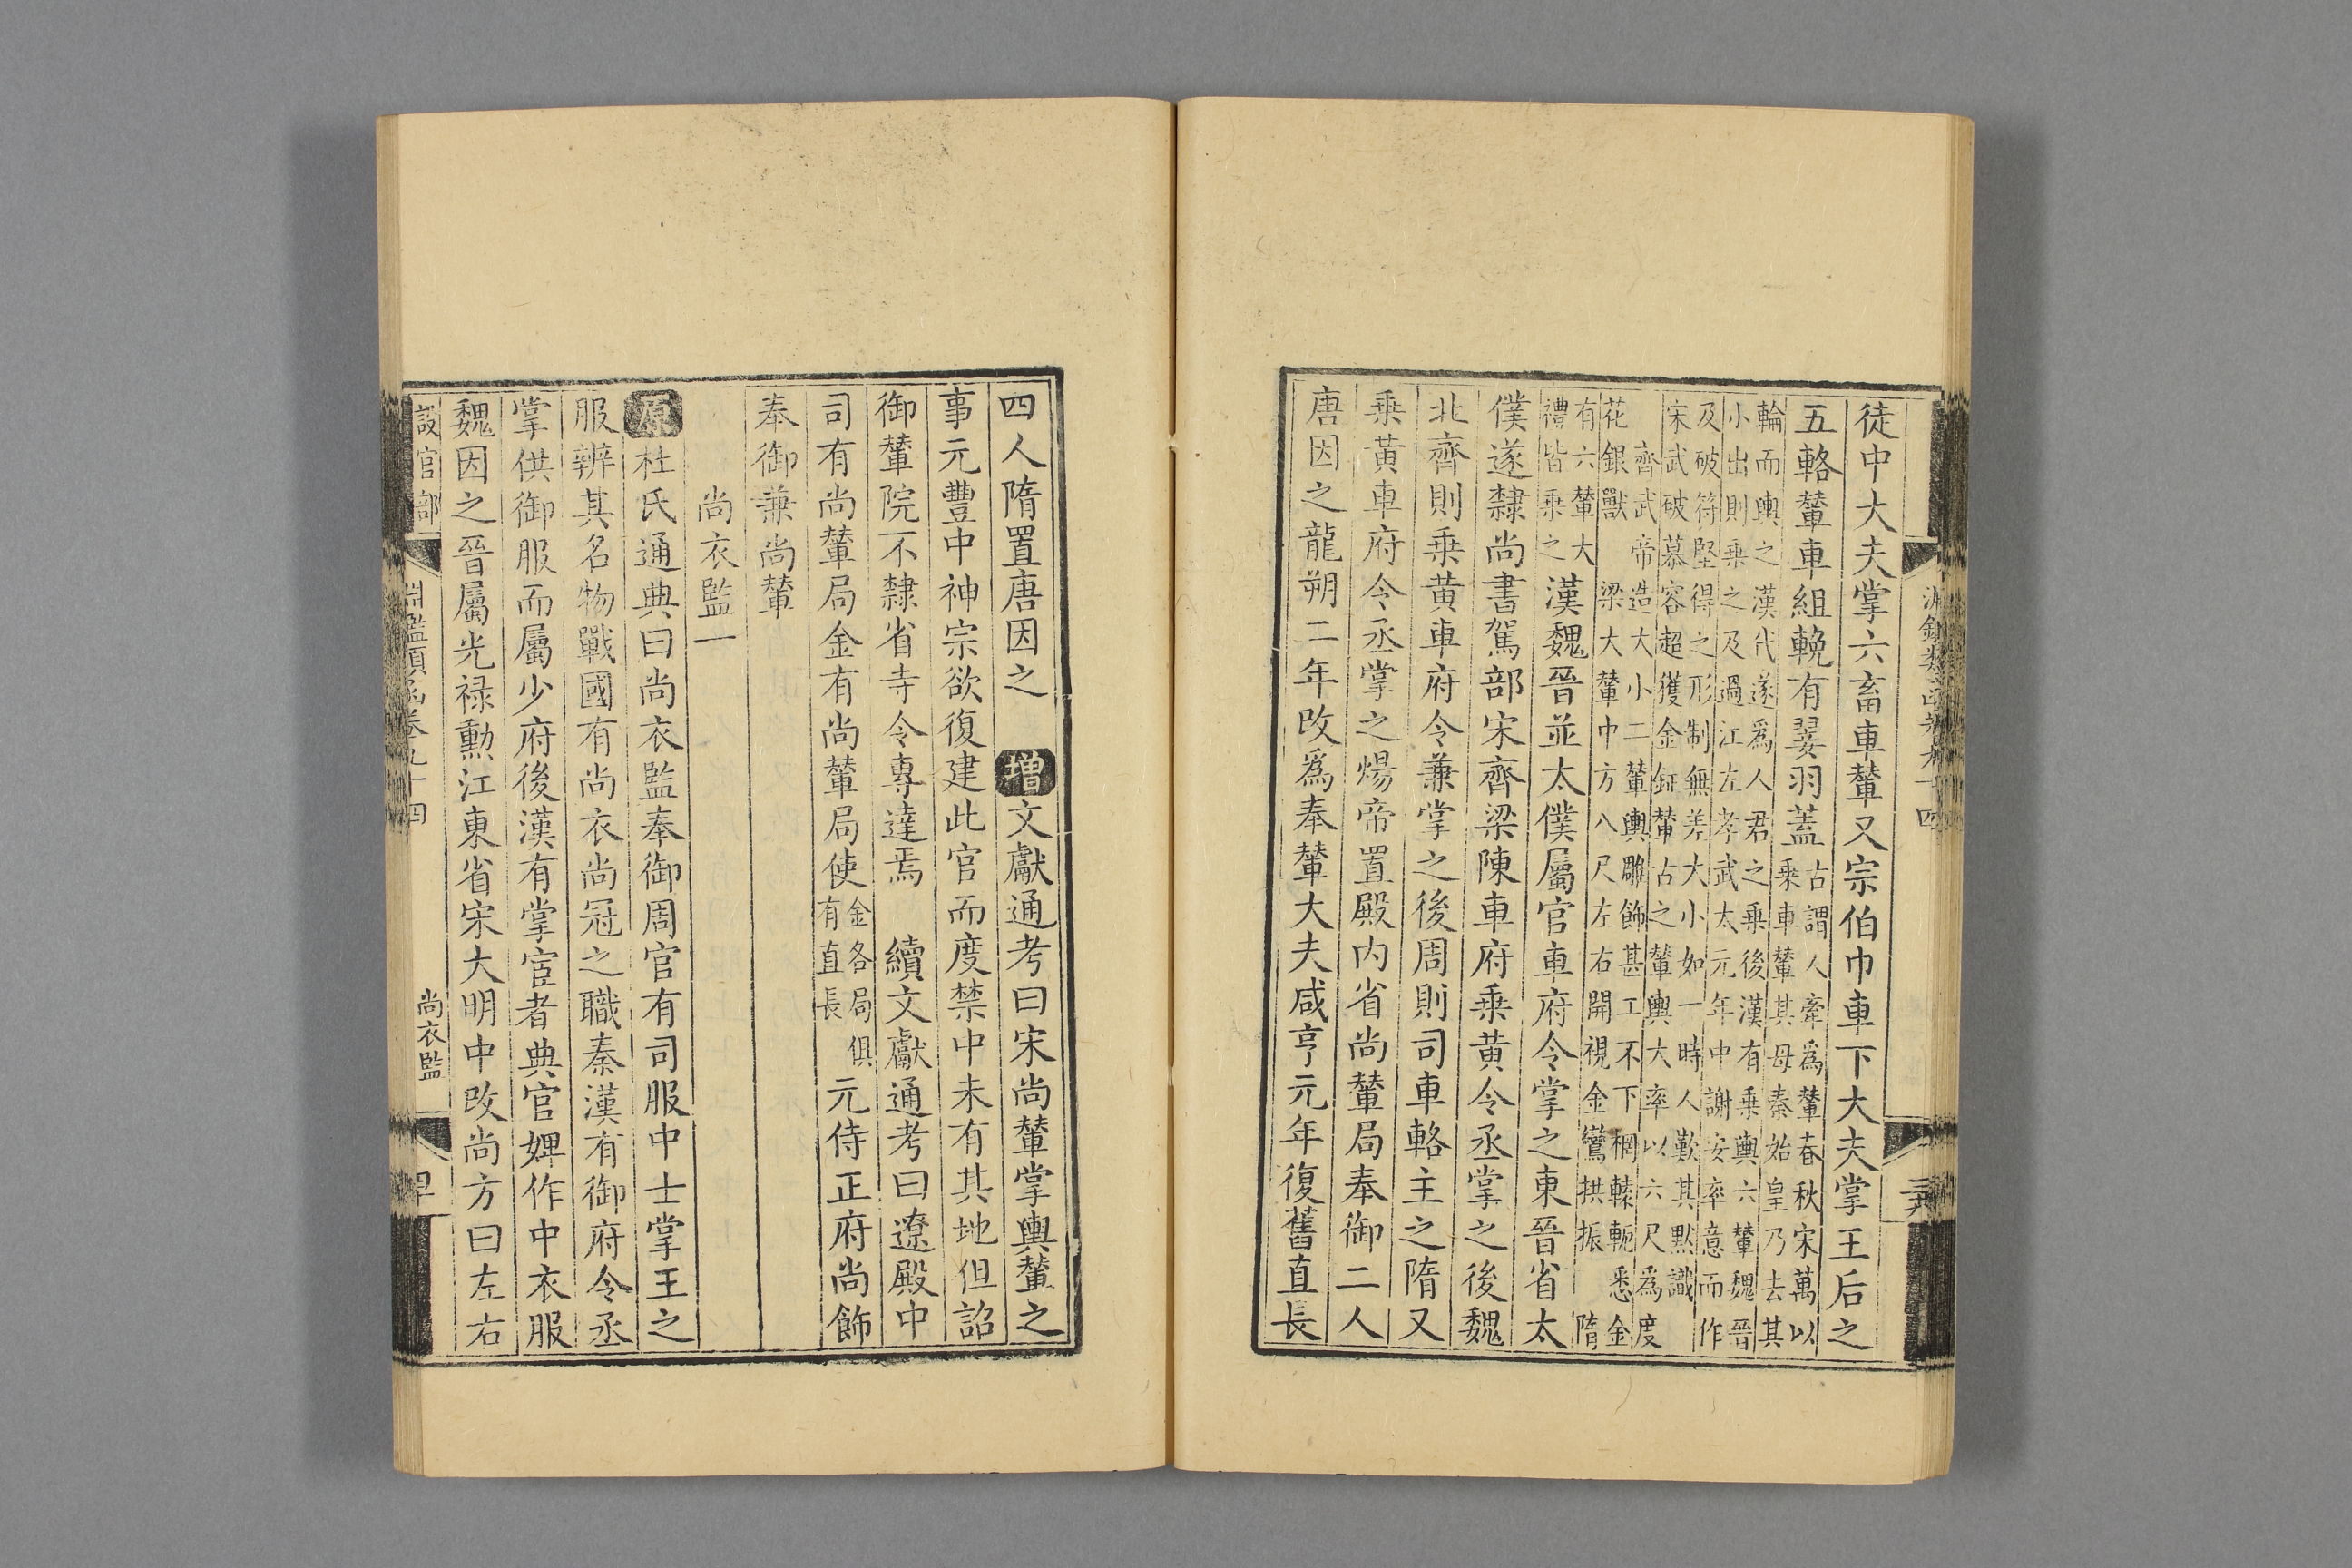 淵鑑類函卷九十四
徒中大夫掌六畜車輦又宗伯巾車下大夫掌王后之
五輅輦車組輓有翣羽蓋古謂人牽爲輦春秋宋萬以
乗車輦其母秦始皇乃去其
輪而輿之漢代遂爲人君之乗後漢有乗輿六輦魏晉
小出則乗之及過江左孝武太元年中謝安率意而作
及破符堅得之形制無差大小如一時人歎其黙識
宋武破慕容超獲金鉦輦古之輦輿大率以六尺爲度
齊武帝造大小二輦輿雕飾甚工不下棢轅軛悉金
花銀獸 梁大輦巾方八尺左右開視金鸞拱振 隋
有六輦大
禮皆乗之漢魏晉並太僕屬官車府令掌之東晉省太
僕遂隸尚書駕部宋齊梁陳車府乗黄令丞掌之後魏
北齊則乗黄車府令兼掌之後周則司車輅主之隋又
乗黃車府令丞掌之煬帝置殿内省尚輦局奉御二人
唐因之龍朔二年改爲奉輦大夫咸亨元年復舊直長
四人隋置唐因之 增文獻通考曰宋尚輦掌輿輦之
事元豐中神宗欲復建此官而度禁中未有其地但詔
御輦院不隸省寺令專達焉 續文獻通考曰遼殿中
司有尚輦局金有尚輦局使金各局俱
有直長元侍正府尚飾
奉御兼尚輦
尚衣監一
原杜氏通典曰尚衣監奉御周官有司服中士掌王之
服辨其名物戰國有尚衣尚冠之職秦漢有御府令丞
掌供御服而屬少府後漢有掌宦者典官婢作中衣服
魏因之晉屬光禄勳江東省宋大明中改尚方曰左右
設官部 淵鑑類函卷九十四 尚衣監